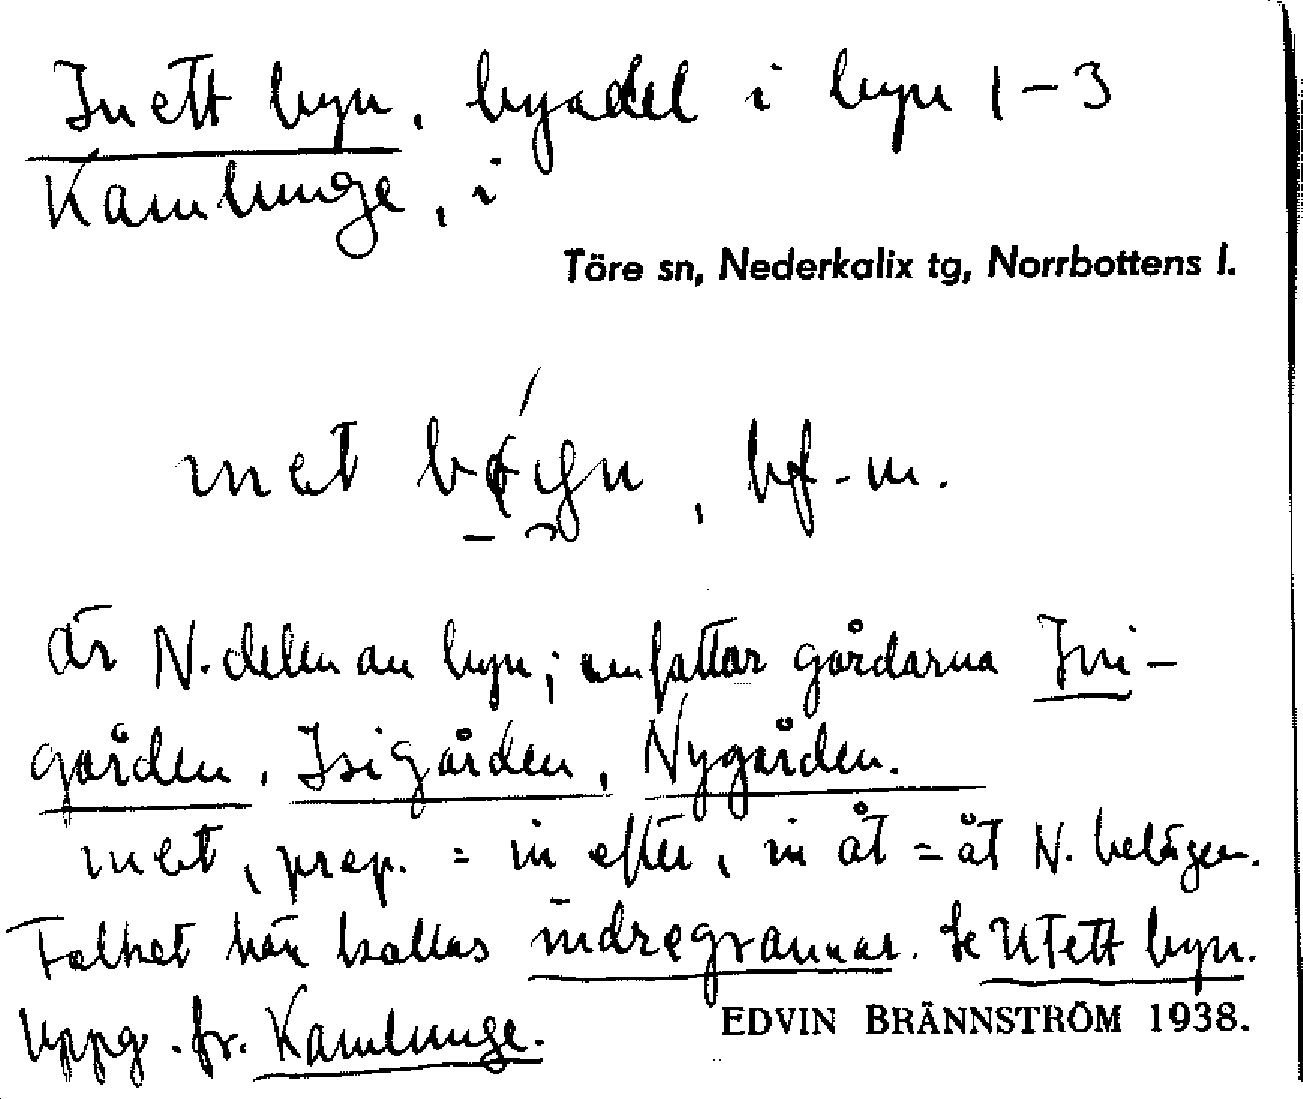 Inett byn, byadel i byn 1-3
Kamlunge, i
Töre sn, Nederkalix tg, Norrbottens l.
, bf-m.
är N. delen av byn; omfattar gårdarna Ini-
gården, Isigården, Nygården.
inet, prep. = in efter, in åt = åt N. belägen.
Folket här kallas indregrannar. Se Utett byn.
Uppg. fr. Kamlunge.
EDVIN BRÄNNSTRÖM 1938.